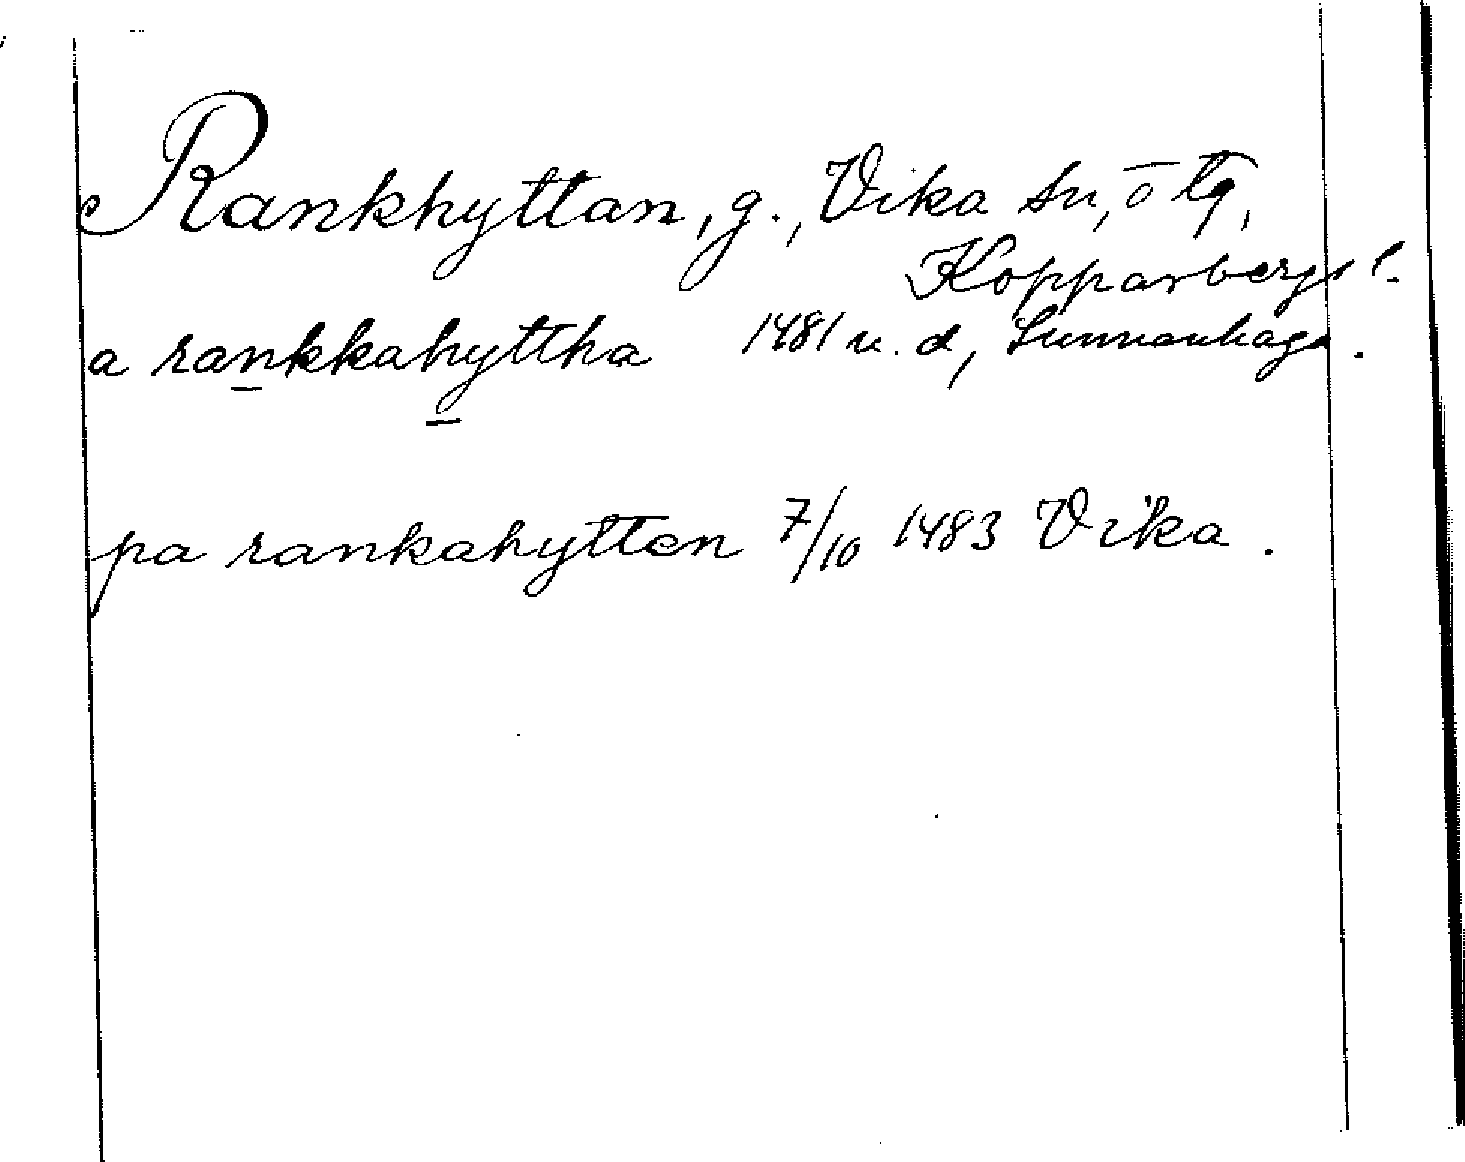 Rankhyttan, g., Vika sn, ö tg,
Kopparbergs l.
a rankkahyttha 1481 u. d, Sunnanhaga.
pa rankahytten 7/10 1483 Vika.